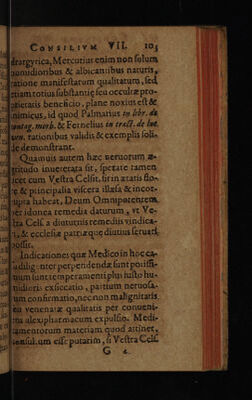 CONSILIVM VII. 103
drargyrica, Mercurius enim non solum
humidioribus & albicantibus naturis,
ratione manifestarum qualitatum, sed
etiam totius substantię seu occultæ pro-
prietatis beneficio, planè noxius est &
inimicus, id quod Palmarius in libr. de
contag. morb. & Fernelius in tract. de lue
ven. rationibus validis & exemplis soli-
dè demonstrant.
Quamuis autem hæc neruorum æ-
gritudo inueterata sit, spetare tamen
licet cum Vestra Celsit. bini ætatis flo-
re & principalia viscera illæsa & incor-
rupta habeat, Deum Omnipotentem
per idonea remedia daturum, vt Ve-
stra Cels. a diuturnis remediis vindica-
ri, & ecclesiæ patriæque diutius seruari
possit.
Indicationes quæ Medico in hoc ca-
su diligenter perpendendæ sunt potissi-
mum sunt temperamenti plus iusto hu-
midioris exsiccatio, partium neruosa-
rum confirmatio, nec non malignitatis
seu venenatæ qualitatis per conueni-
entia alexipharmacum expulsio. Medi-
camentorum materiam quod attinet,
consultum esse putarim, si Vestra Cels.
G 4